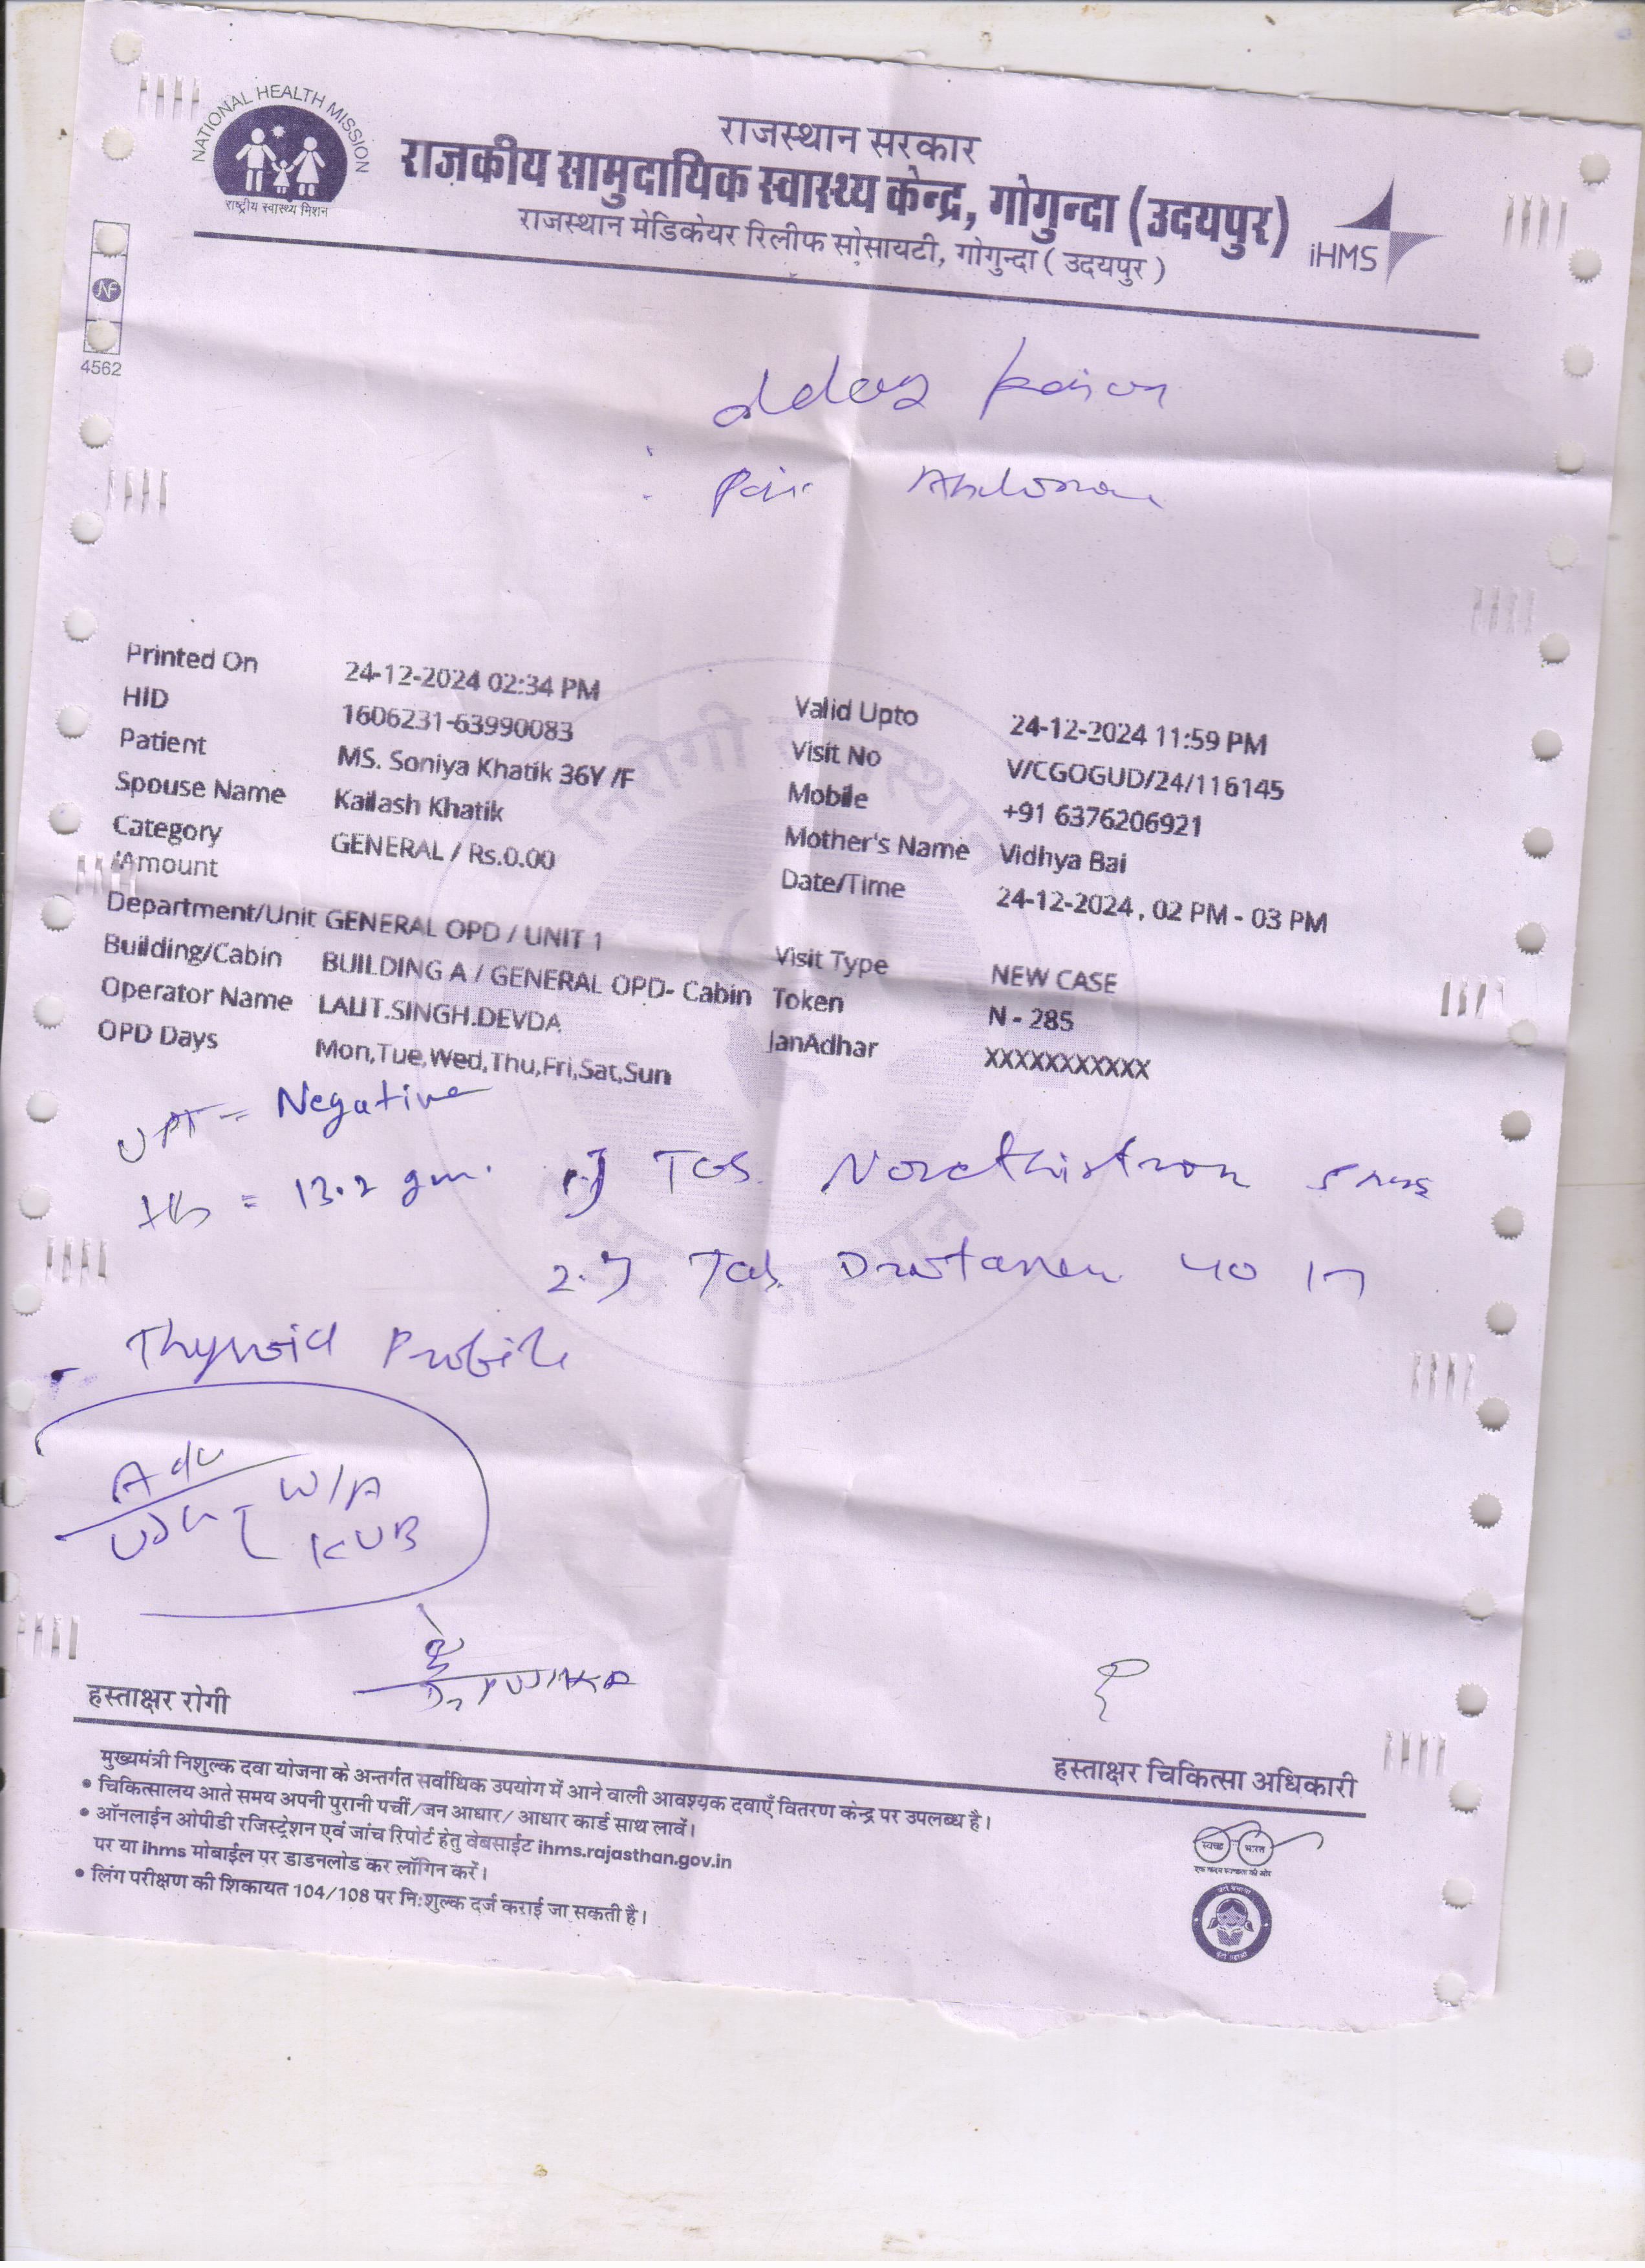 NATIONAL HEALTH MISSION
राष्ट्रीय स्वास्थ्य मिशन
राजस्थान सरकार
राजकीय सामुदायिक स्वास्थ्य केन्द्र, गोगुन्दा (उदयपुर)
राजस्थान मेडिकेयर रिलीफ सोसायटी, गोगुन्दा ( उदयपुर )
iHMS
NF
4562
Pain
Printed On 24-12-2024 02:34 PM
HID 1606231-63990083
Patient MS. Soniya Khatik 36Y /F
Spouse Name Kailash Khatik
Category GENERAL / Rs.0.00
/Amount
Department/Unit GENERAL OPD / UNIT 1
Building/Cabin BUILDING A / GENERAL OPD- Cabin
Operator Name LALIT.SINGH.DEVDA
OPD Days Mon,Tue,Wed,Thu,Fri,Sat,Sun
Valid Upto 24-12-2024 11:59 PM
Visit No V/CGOGUD/24/116145
Mobile +91 6376206921
Mother's Name Vidhya Bai
Date/Time 24-12-2024 , 02 PM - 03 PM
Visit Type NEW CASE
Token N - 285
JanAdhar XXXXXXXXXXX
निरोगी राजस्थान
UPT = Negative
Hb = 13.2 gm.
1.) Tab.
2.) Tab.
Thyroid Profile
Adv
W/A
KUB
हस्ताक्षर रोगी
हस्ताक्षर चिकित्सा अधिकारी
मुख्यमंत्री निशुल्क दवा योजना के अन्तर्गत सर्वाधिक उपयोग में आने वाली आवश्यक दवाएँ वितरण केन्द्र पर उपलब्ध है।
• चिकित्सालय आते समय अपनी पुरानी पर्ची/जन आधार/ आधार कार्ड साथ लावें।
• ऑनलाईन ओपीडी रजिस्ट्रेशन एवं जांच रिपोर्ट हेतु वेबसाईट ihms.rajasthan.gov.in
पर या ihms मोबाईल पर डाडनलोड कर लॉगिन करें।
• लिंग परीक्षण की शिकायत 104/108 पर नि:शुल्क दर्ज कराई जा सकती है।
स्वच्छ भारत